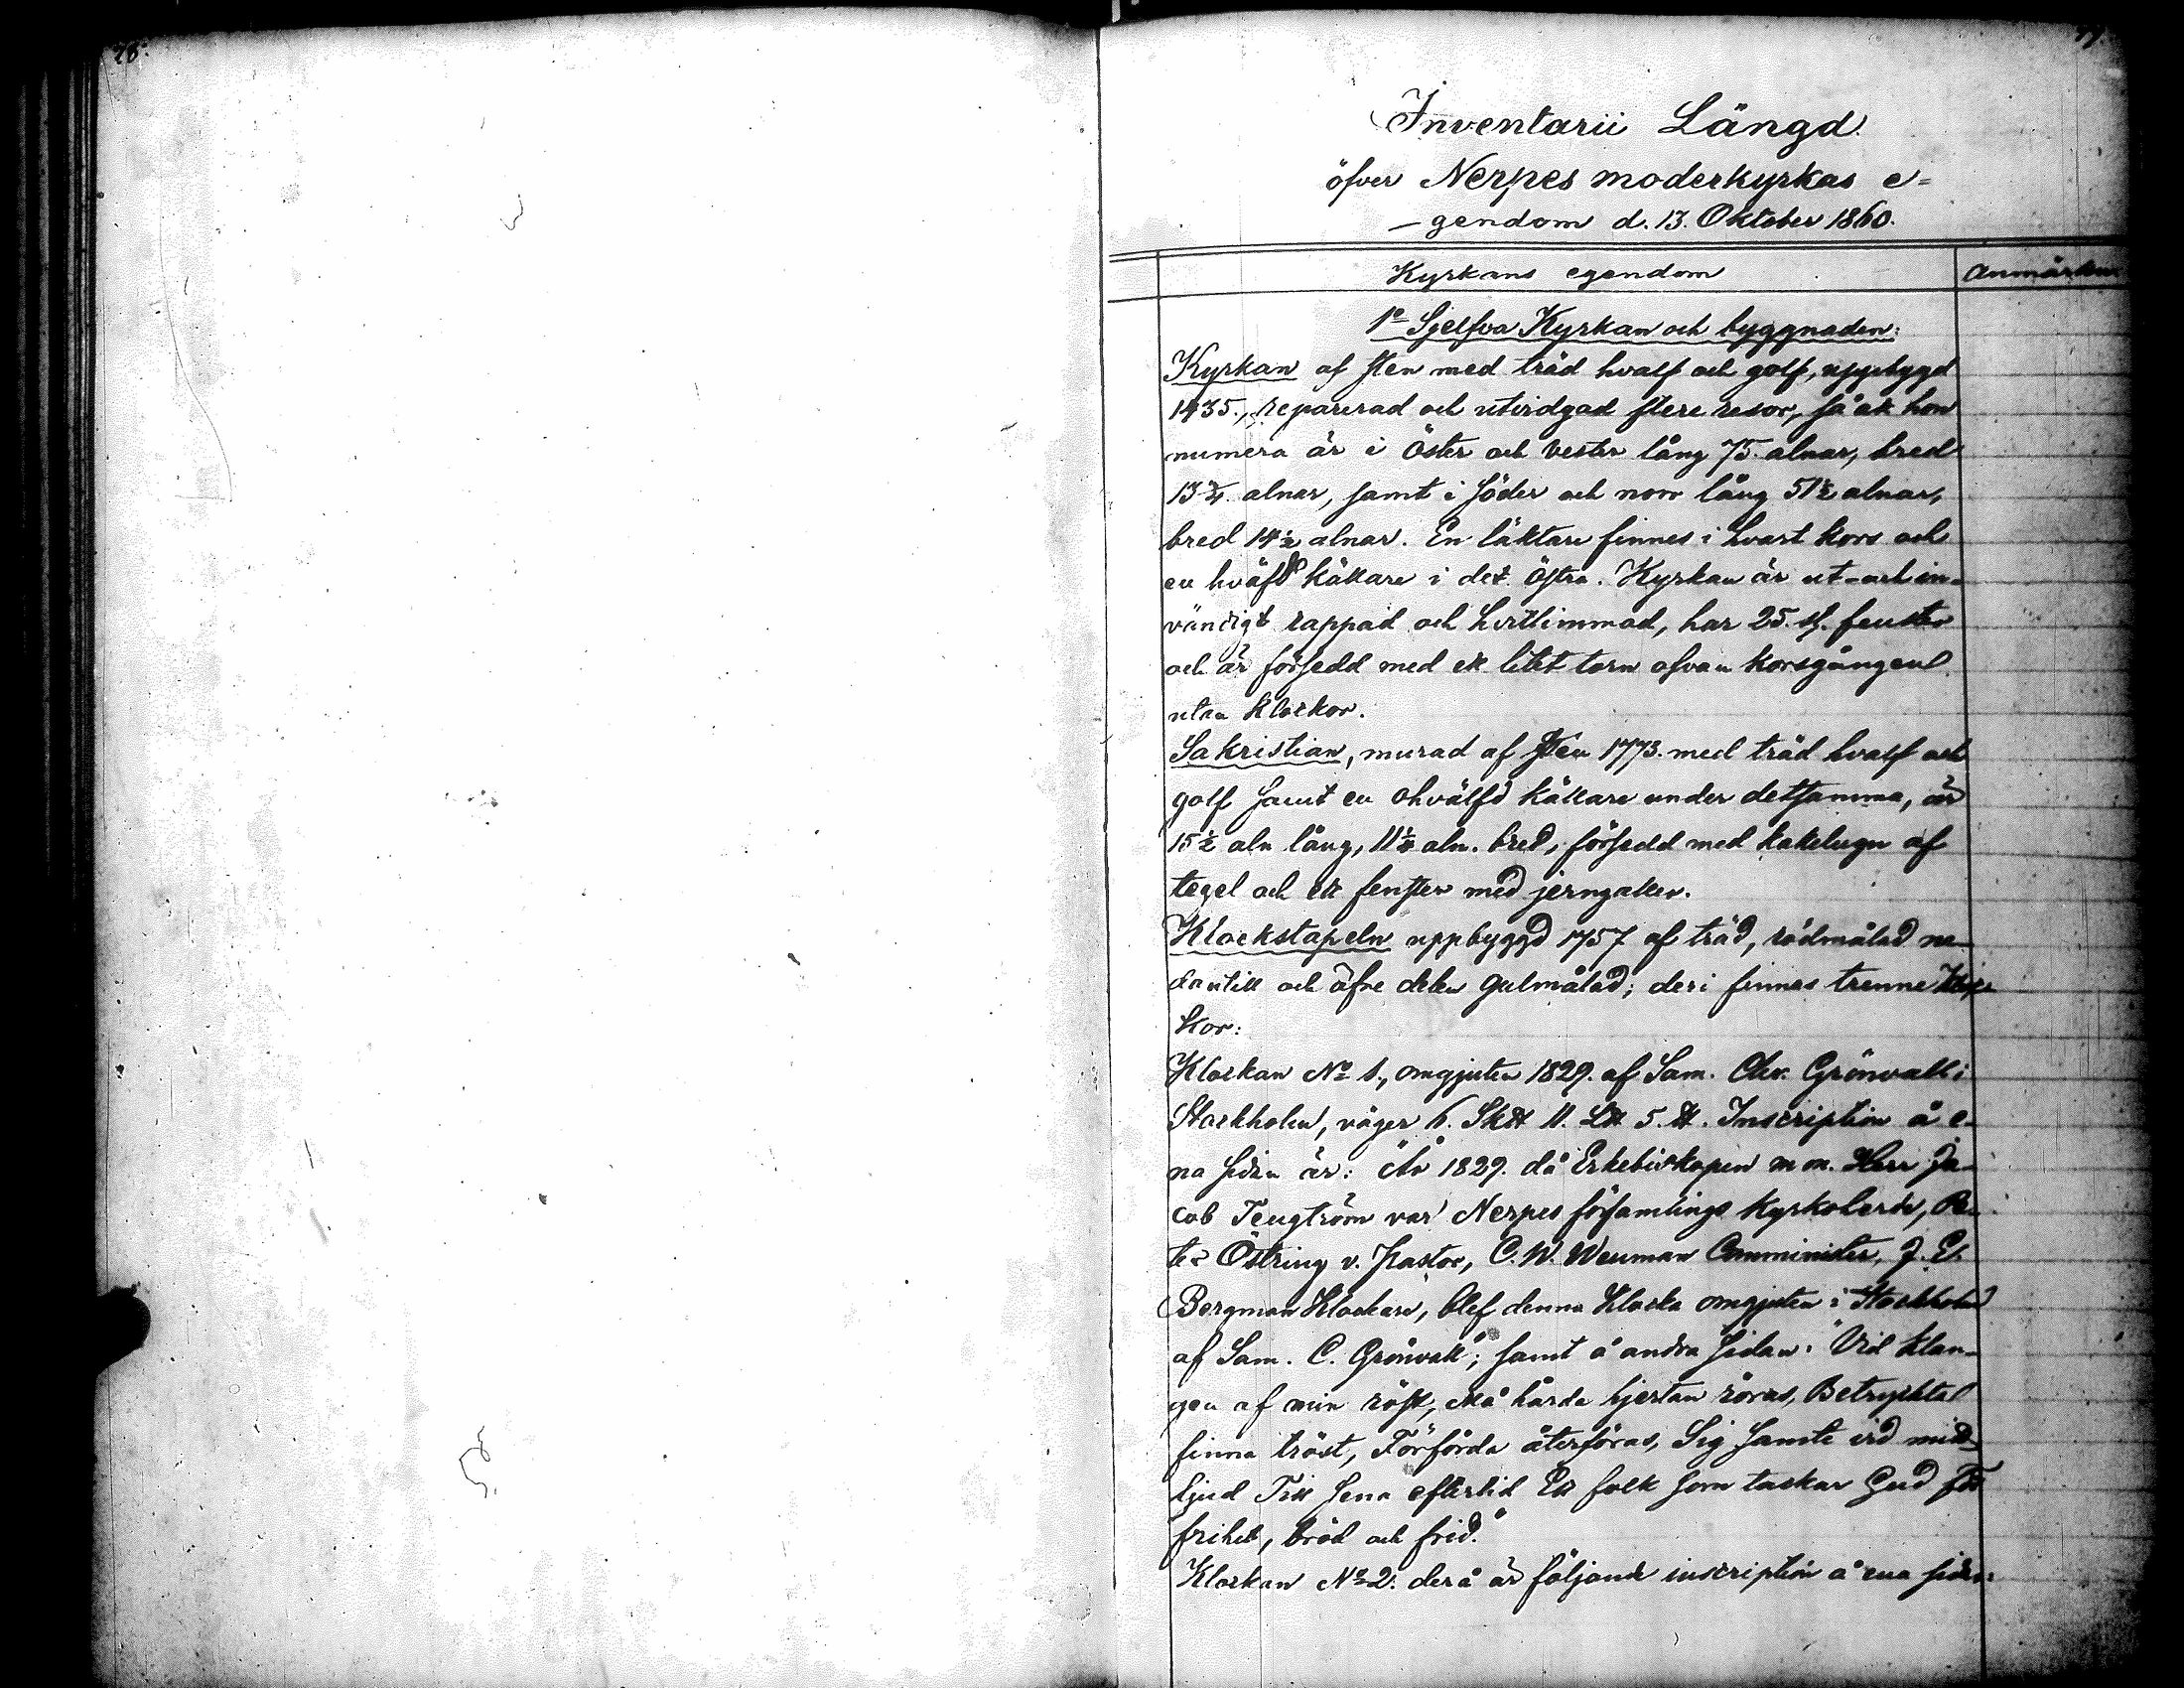 78.
Inventarii Längd
öfver Nerpes moderkyrkas e=
-gendom d. 13. Oktober 1860.
Kyrkans egendom
Anmärkn.
1º Sjelfva Kyrkan och byggnaden:
Kyrkan af sten med träd hvalf och golf, uppbygd
1435., reparerad och utvidgad flere resor, så att hon
numera är i Öster och Vester lång 75. alnar, bred
13¾. alnar, samt i söder och norr lång 51½ alnar,
bred 14½ alnar. En läktare finnes i hvart kors och
en hväfd källare i det östra. Kyrkan är ut- och in-
vändigt rappad och hvitlimmad, har 25. st. fenster
och är försedd med ett litet torn ofvan korsgången
utan klockor.
Sakristian, murad af sten 1773. med träd hvalf och
golf samt en ohvälfd källare under detsamma, är
15½ aln lång, 11½ aln. bred, försedd med kakelugn af
tegel och ett fenster med jerngaller.
Klockstapeln uppbyggd 1757 af träd, rödmålad ne-
dantill och öfre delen gulmålad; deri finnes trenne kloc-
kor:
Klockan Nº 1., omgjuten 1829. af Sam. Chr. Grönvall i
Stockholm, väger 6. Sk℔ 11. L℔ 5. ℔. Inscription å e-
na sidan är: "År 1829. då Erkebiskopen m m. Herr Ja-
cob Tengström var Nerpes församlings Kyrkoherde, Pe-
ter Östring v. Pastor, C. W. Wenman Comminister, J. E.
Bergman Klockare, blef denna klocka omgjuten i Stockholm
af Sam. C. Grönvall"; samt å andra sidan: "Vid klan-
gen af min röst, Må hårda hjertan röras, Betryckta
finna tröst, Förförda återföras, Sig samte vid mitt
ljud Till sena eftertid Ett folk som tackar Gud För
frihet, bröd och frid."
Klockan Nº 2. derå är följande inscription å ena sidan: